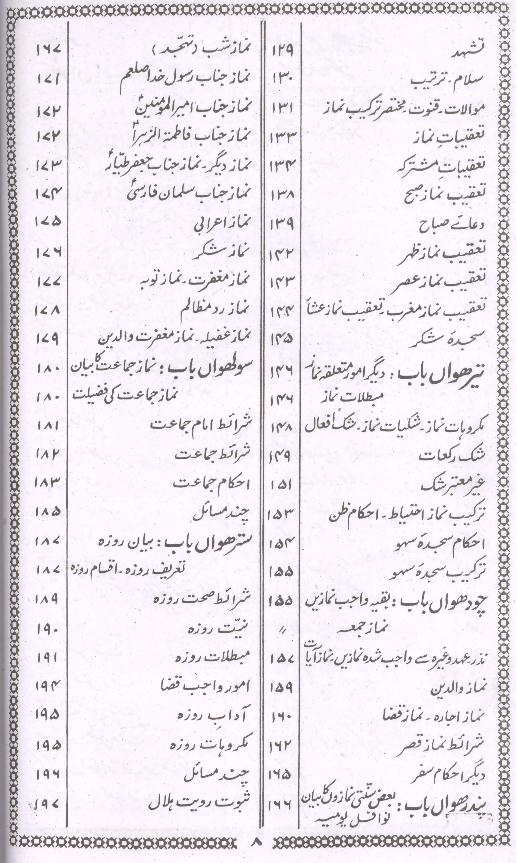 تشہد ۱۲۹
سلام۔ ترتیب ۱۳۰
موالات۔ قنوت۔ مختصر ترکیب نماز ۱۳۱
تعقیبات نماز ۱۳۳
تعقیبات مشترکہ ۱۳۴
تعقیب نماز صبح ۱۳۸
دعائے صباح ۱۳۹
تعقیب نماز ظہر ۱۴۲
تعقیب نماز عصر ۱۴۳
تعقیب نماز مغرب۔ تعقیب نماز عشا ۱۴۴
سجدۂ شکر ۱۴۵
تیرھواں باب: دیگر امور متعلقہ نماز ۱۴۶
مبطلات نماز ۱۴۶
مکروہات نماز۔ شکیات نماز۔ شک افعال ۱۴۸
شک رکعات ۱۴۹
غیر معتبر شک ۱۵۱
ترکیب نماز احتیاط۔ احکام ظن ۱۵۳
احکام سجدۂ سہو ۱۵۴
ترکیب سجدۂ سہو ۱۵۵
چودھواں باب: بقیہ واجب نمازیں ۱۵۵
نماز جمعہ 〃
نذر عہد وغیرہ سے واجب شدہ نمازیں۔ نماز آیات ۱۵۷
نماز والدین ۱۵۹
نماز اجارہ۔ نماز قضا ۱۶۰
شرائط نماز قصر ۱۶۲
دیگر احکام سفر ۱۶۵
پندرھواں باب: بعض سنتی نمازوں کا بیان ۱۶۶
نوافل یومیہ
نماز شب (تہجد) ۱۶۷
نماز جناب رسول خدا صلعم ۱۷۱
نماز جناب امیر المومنینؑ ۱۷۲
نماز جناب فاطمۃ الزہراؑ ۱۷۲
نماز دیگر۔ نماز جناب جعفر طیارؑ ۱۷۳
نماز جناب سلمان فارسیؓ ۱۷۴
نماز اعرابی ۱۷۵
نماز شکر ۱۷۶
نماز مغفرت۔ نماز توبہ ۱۷۷
نماز رد مظالم ۱۷۸
نماز غفیلہ۔ نماز مغفرت والدین ۱۷۹
سولھواں باب: نماز جماعت کا بیان ۱۸۰
نماز جماعت کی فضیلت ۱۸۰
شرائط امام جماعت ۱۸۱
شرائط جماعت ۱۸۲
احکام جماعت ۱۸۳
چند مسائل ۱۸۵
سترھواں باب: بیان روزہ ۱۸۷
تعریف روزہ۔ اقسام روزہ ۱۸۷
شرائط صحت روزہ ۱۸۹
نیت روزہ ۱۹۰
مبطلات روزہ ۱۹۱
امور واجب قضا ۱۹۴
آداب روزہ ۱۹۵
مکروہات روزہ ۱۹۵
چند مسائل ۱۹۶
ثبوت رویت ہلال ۱۹۷
۸